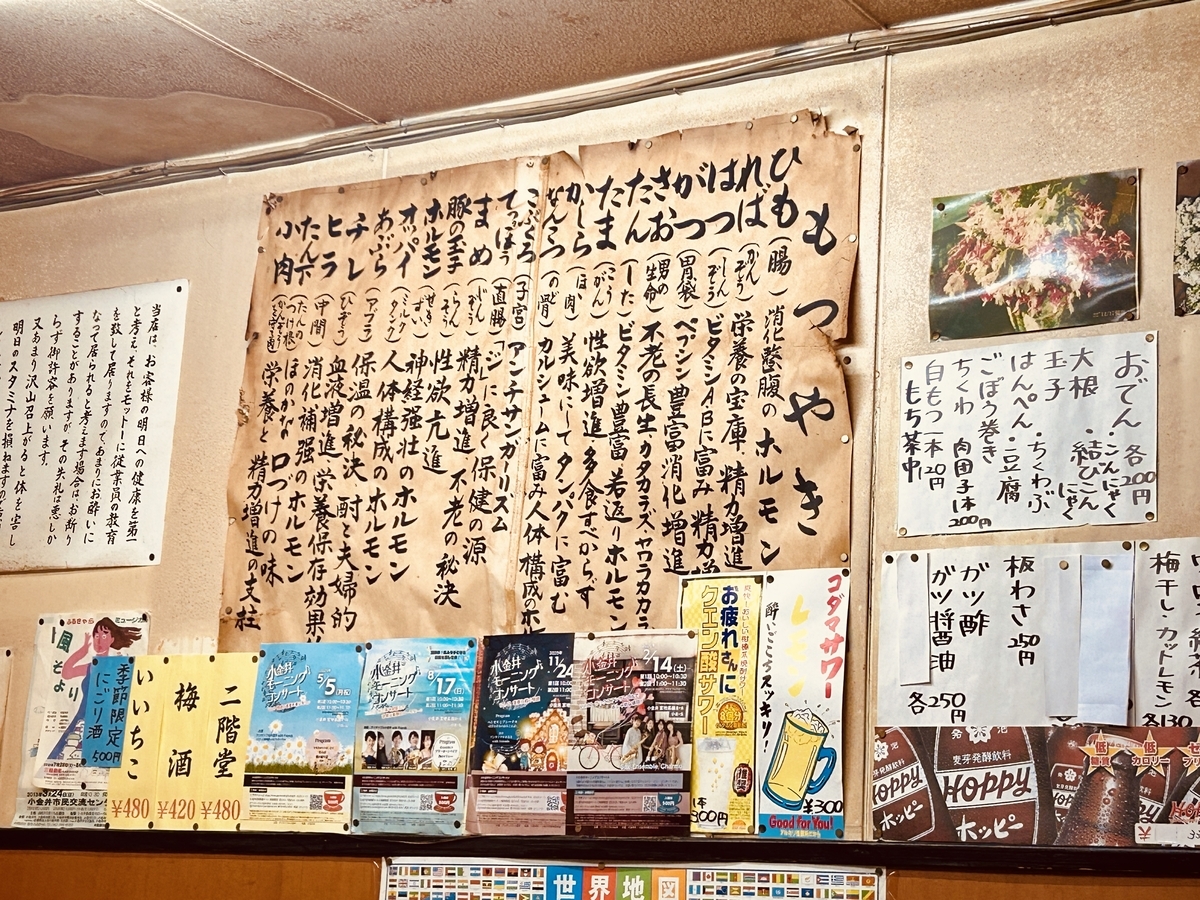 もつやき
ひも（腸）消化整腹のホルモン
ればー（かんぞう）栄養の宝庫、精力増進
はつ（しんぞう）ビタミンABに富み精力増
がつ（胃袋）ペプシン豊富消化増進
さお（男の生命）不老の長生カタカラズ、ヤワラカカラ
たん（した）ビタミン豊富若返りホルモン
たま（こうがん）性欲増進多食すべからず
かしら（ほほ肉）美味にしてタンパクに富む
なんこつ（の骨）カルシュームに富み人体構成のホ
こぶくろ（子宮）アンチサンガーリズム
てっぽう（直腸）「ジ」に良く保健の源
まめ（じんぞう）精力増進不老の秘決
豚の玉子（らんそう）性欲亢進
ホルモン（せきずい）神経強壮のホルモン
オッパイ（ミルクタンク）人体構成のホルモン
あぶら（アブラ）保温の秘決
チレ（ひぞう）血液増進 酎と夫婦的
ヒラ（中間）消化補強 栄養保存効果
たん下（たんのつけ根）ほのかな口づけの味のホルモン
小肉 栄養と精力増進の支柱
当店は、お客様の明日への健康を第一
と考え それをモットーに従業員の教育
を致して居りますので、あまりにお酔いに
なって居られると考えます場合は、お断り
することがありますが その失礼は悪しか
らず御許容を願います。
又あまり沢山召上がると体を害し
明日のスタミナを損ねますので
おでん 各200円
大根 ・こんにゃく
玉子 ・結びこんにゃく
はんぺん ・ちくわぶ
ごぼう巻き ・豆腐
ちくわ 肉団子1本200円
白もつ一本120円
もち茶巾
梅干し・カットレモン
各130
板わさ 250円
ガツ酢
ガツ醤油
各250円
ふるきゃら
ミュージカル
風そより
小金井市民交流センター
季節限定
にごり酒
500円
いいちこ
¥480
梅酒
¥420
二階堂
¥480
小金井
モーニング
コンサート
5/5(月祝)
小金井
モーニング
コンサート
8/17(日)
小金井
モーニング
コンサート
11/24
小金井
モーニング
コンサート
2/14(土)
お疲れさんに
クエン酸サワー
1本
300円
コダマサワー
レモン
酔いごこちスッキリ！
¥300
Good for You!
麦芽発酵飲料
HOPPY
ホッピー
発泡
麦芽発酵飲料
HOPPY
ホッピー
低糖質
低カロリー
世界地図